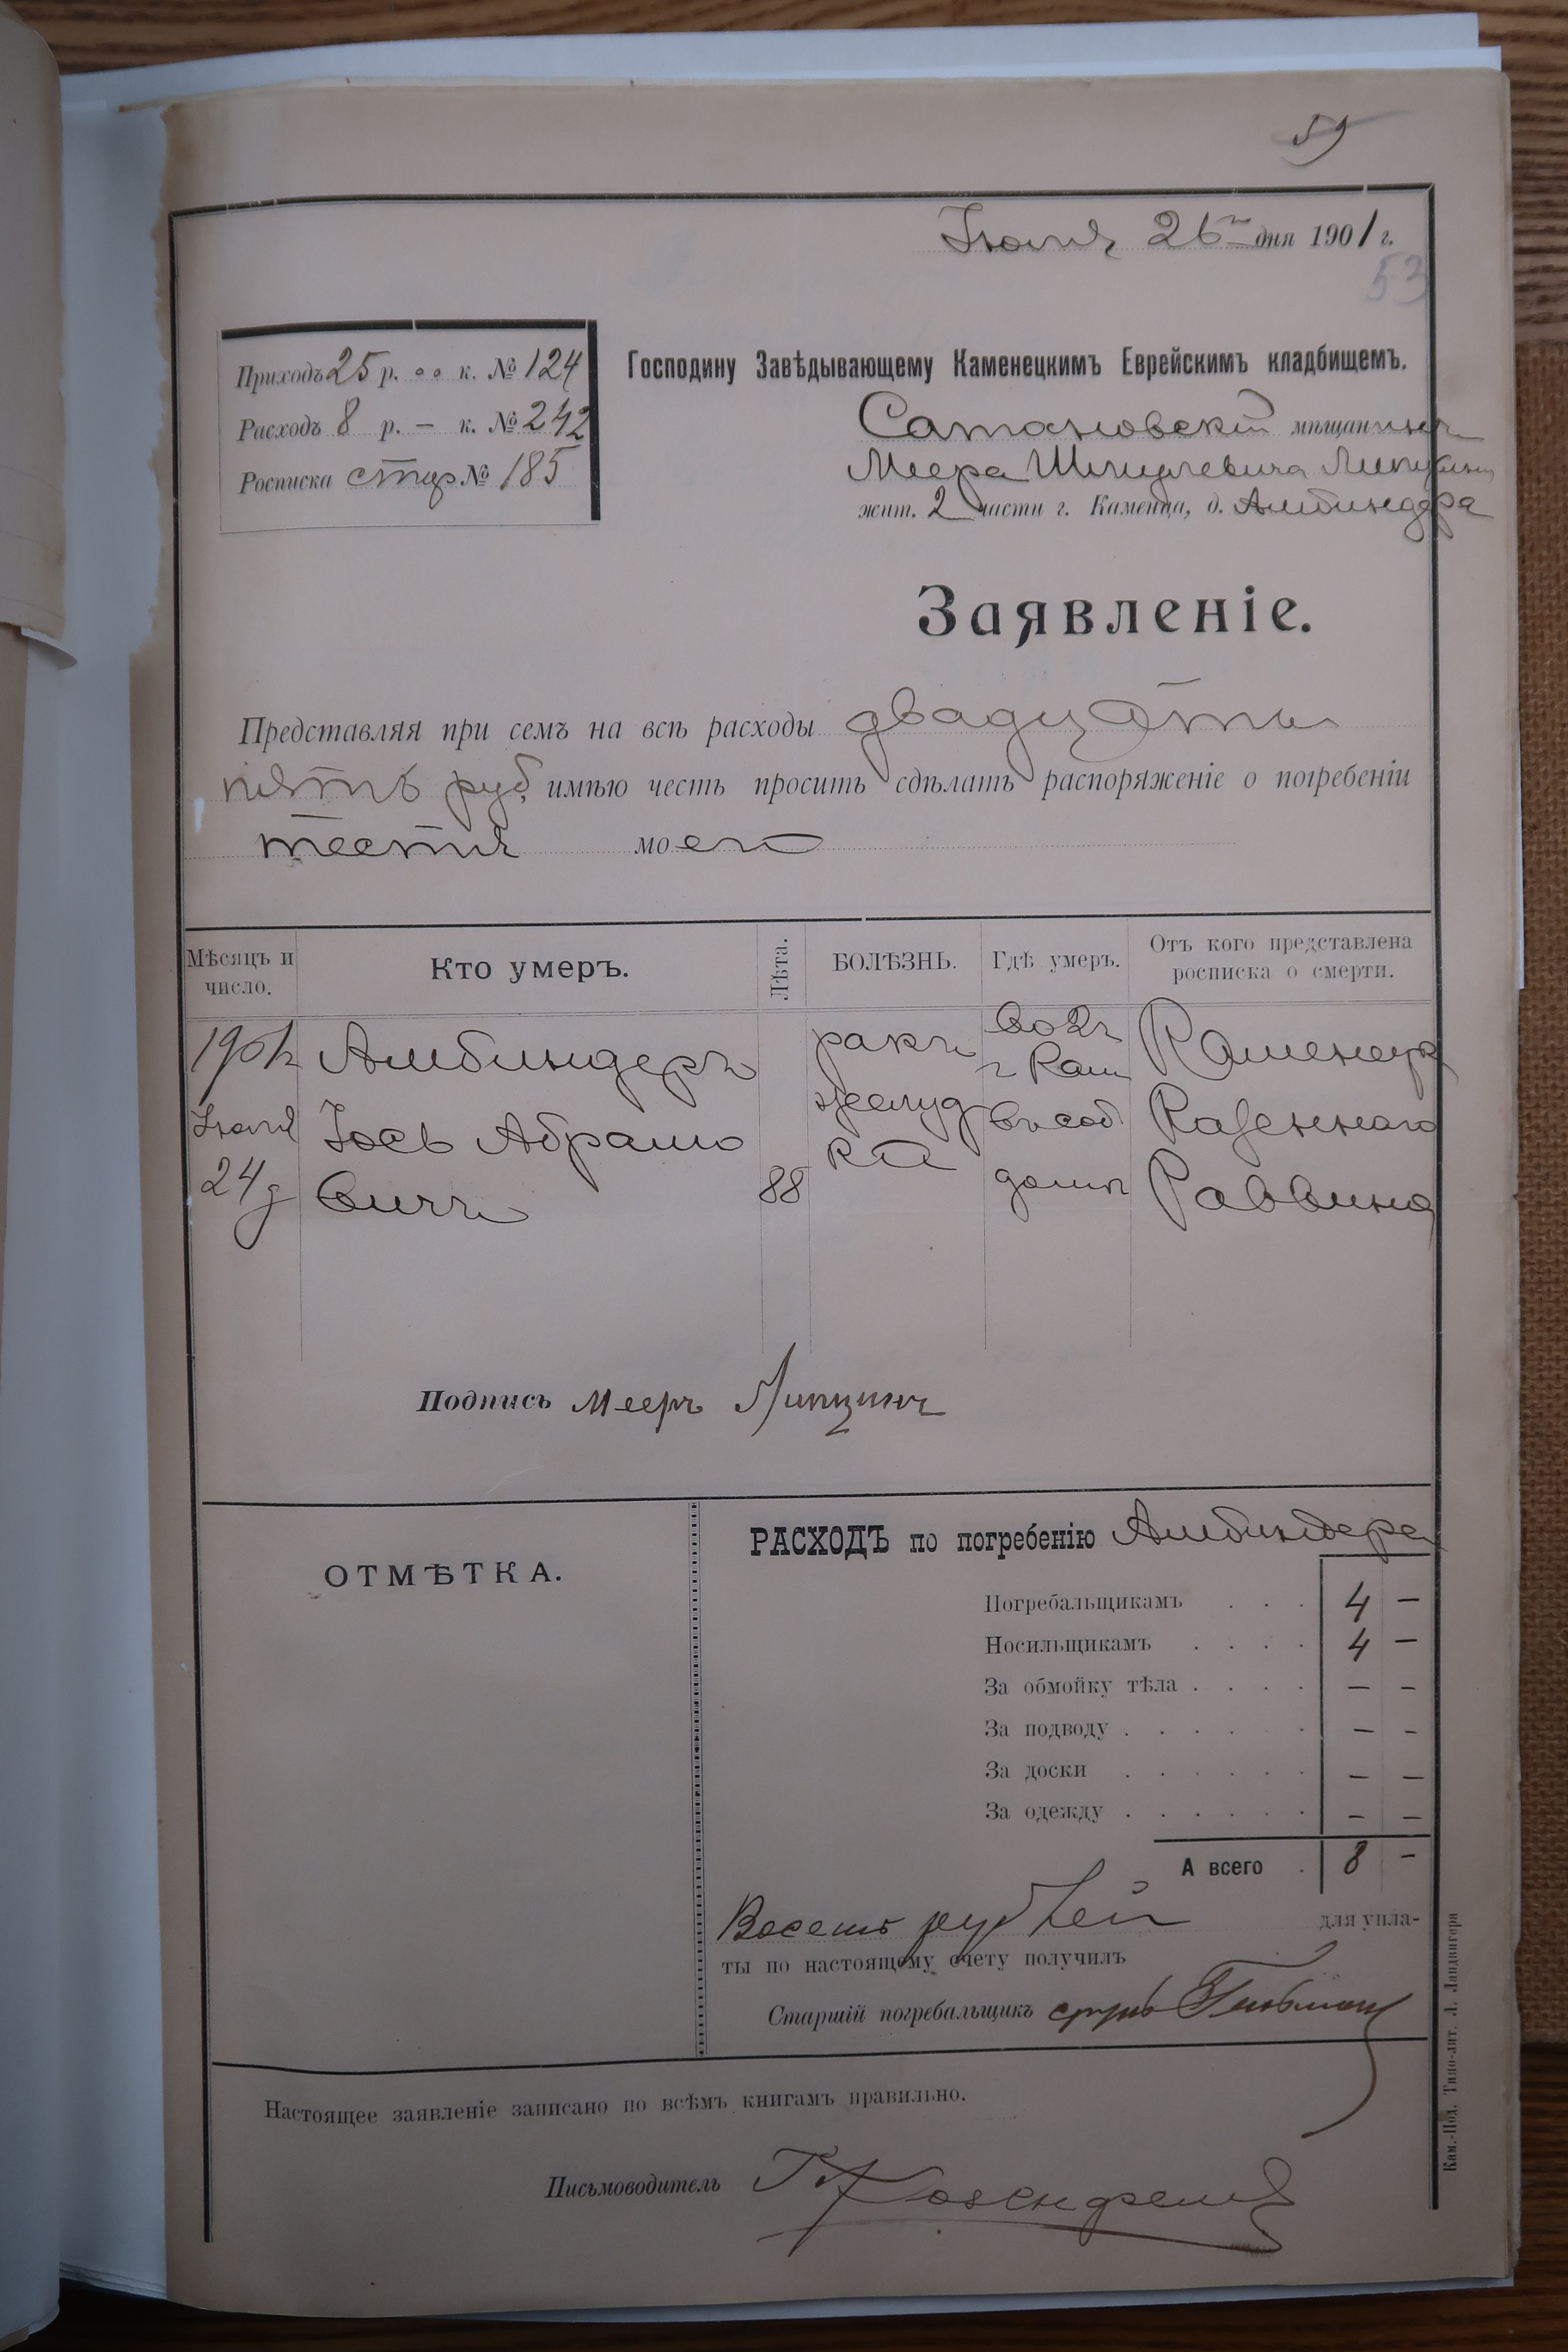 59
Іюля 26 дня 1901 г.
53
Приходъ 25 р. 00 к. № 124
Расходъ 8 р. – к. № 242
Росписка стар № 185
Господину Завѣдывающему Каменецкимъ Еврейскимъ кладбищемъ.
Сатановскій мѣщанинъ
Меера Шмулевича Липцинъ
жит. 2 части г. Каменца, д. Альбиндера
Заявленіе.
Представляя при семъ на всѣ расходы двадцать
пять руб, имѣю честь просить сдѣлать распоряженіе о погребеніи
тестя моего
Мѣсяцъ и число. Кто умеръ. Лѣта. БОЛѢЗНЬ. Гдѣ умеръ. Отъ кого представлена росписка о смерти.
1901 Альбиндеръ ракъ во 2ч Каменецк
г Кам
Іюля Іось Абрамо желуд въ соб Казеннаго
24 вичъ 88 ка домѣ Раввина
Подпись Мееръ Липцинъ
ОТМѢТКА.
РАСХОДЪ по погребенію Альбиндера
Погребальщикамъ . . . 4 –
Носильщикамъ . . . . 4 –
За обмойку тѣла . . . . – –
За подводу . . . . . – –
За доски . . . . . . – –
За одежду . . . . . . – –
А всего . 8 –
Восемь рублей для упла-
ты по настоящему счету получилъ
Старшій погребальщикъ
Настоящее заявленіе записано по всѣмъ книгамъ правильно.
Письмоводитель Розенфельд
Кам.-Под. Типо-лит. Л. Ландвигера